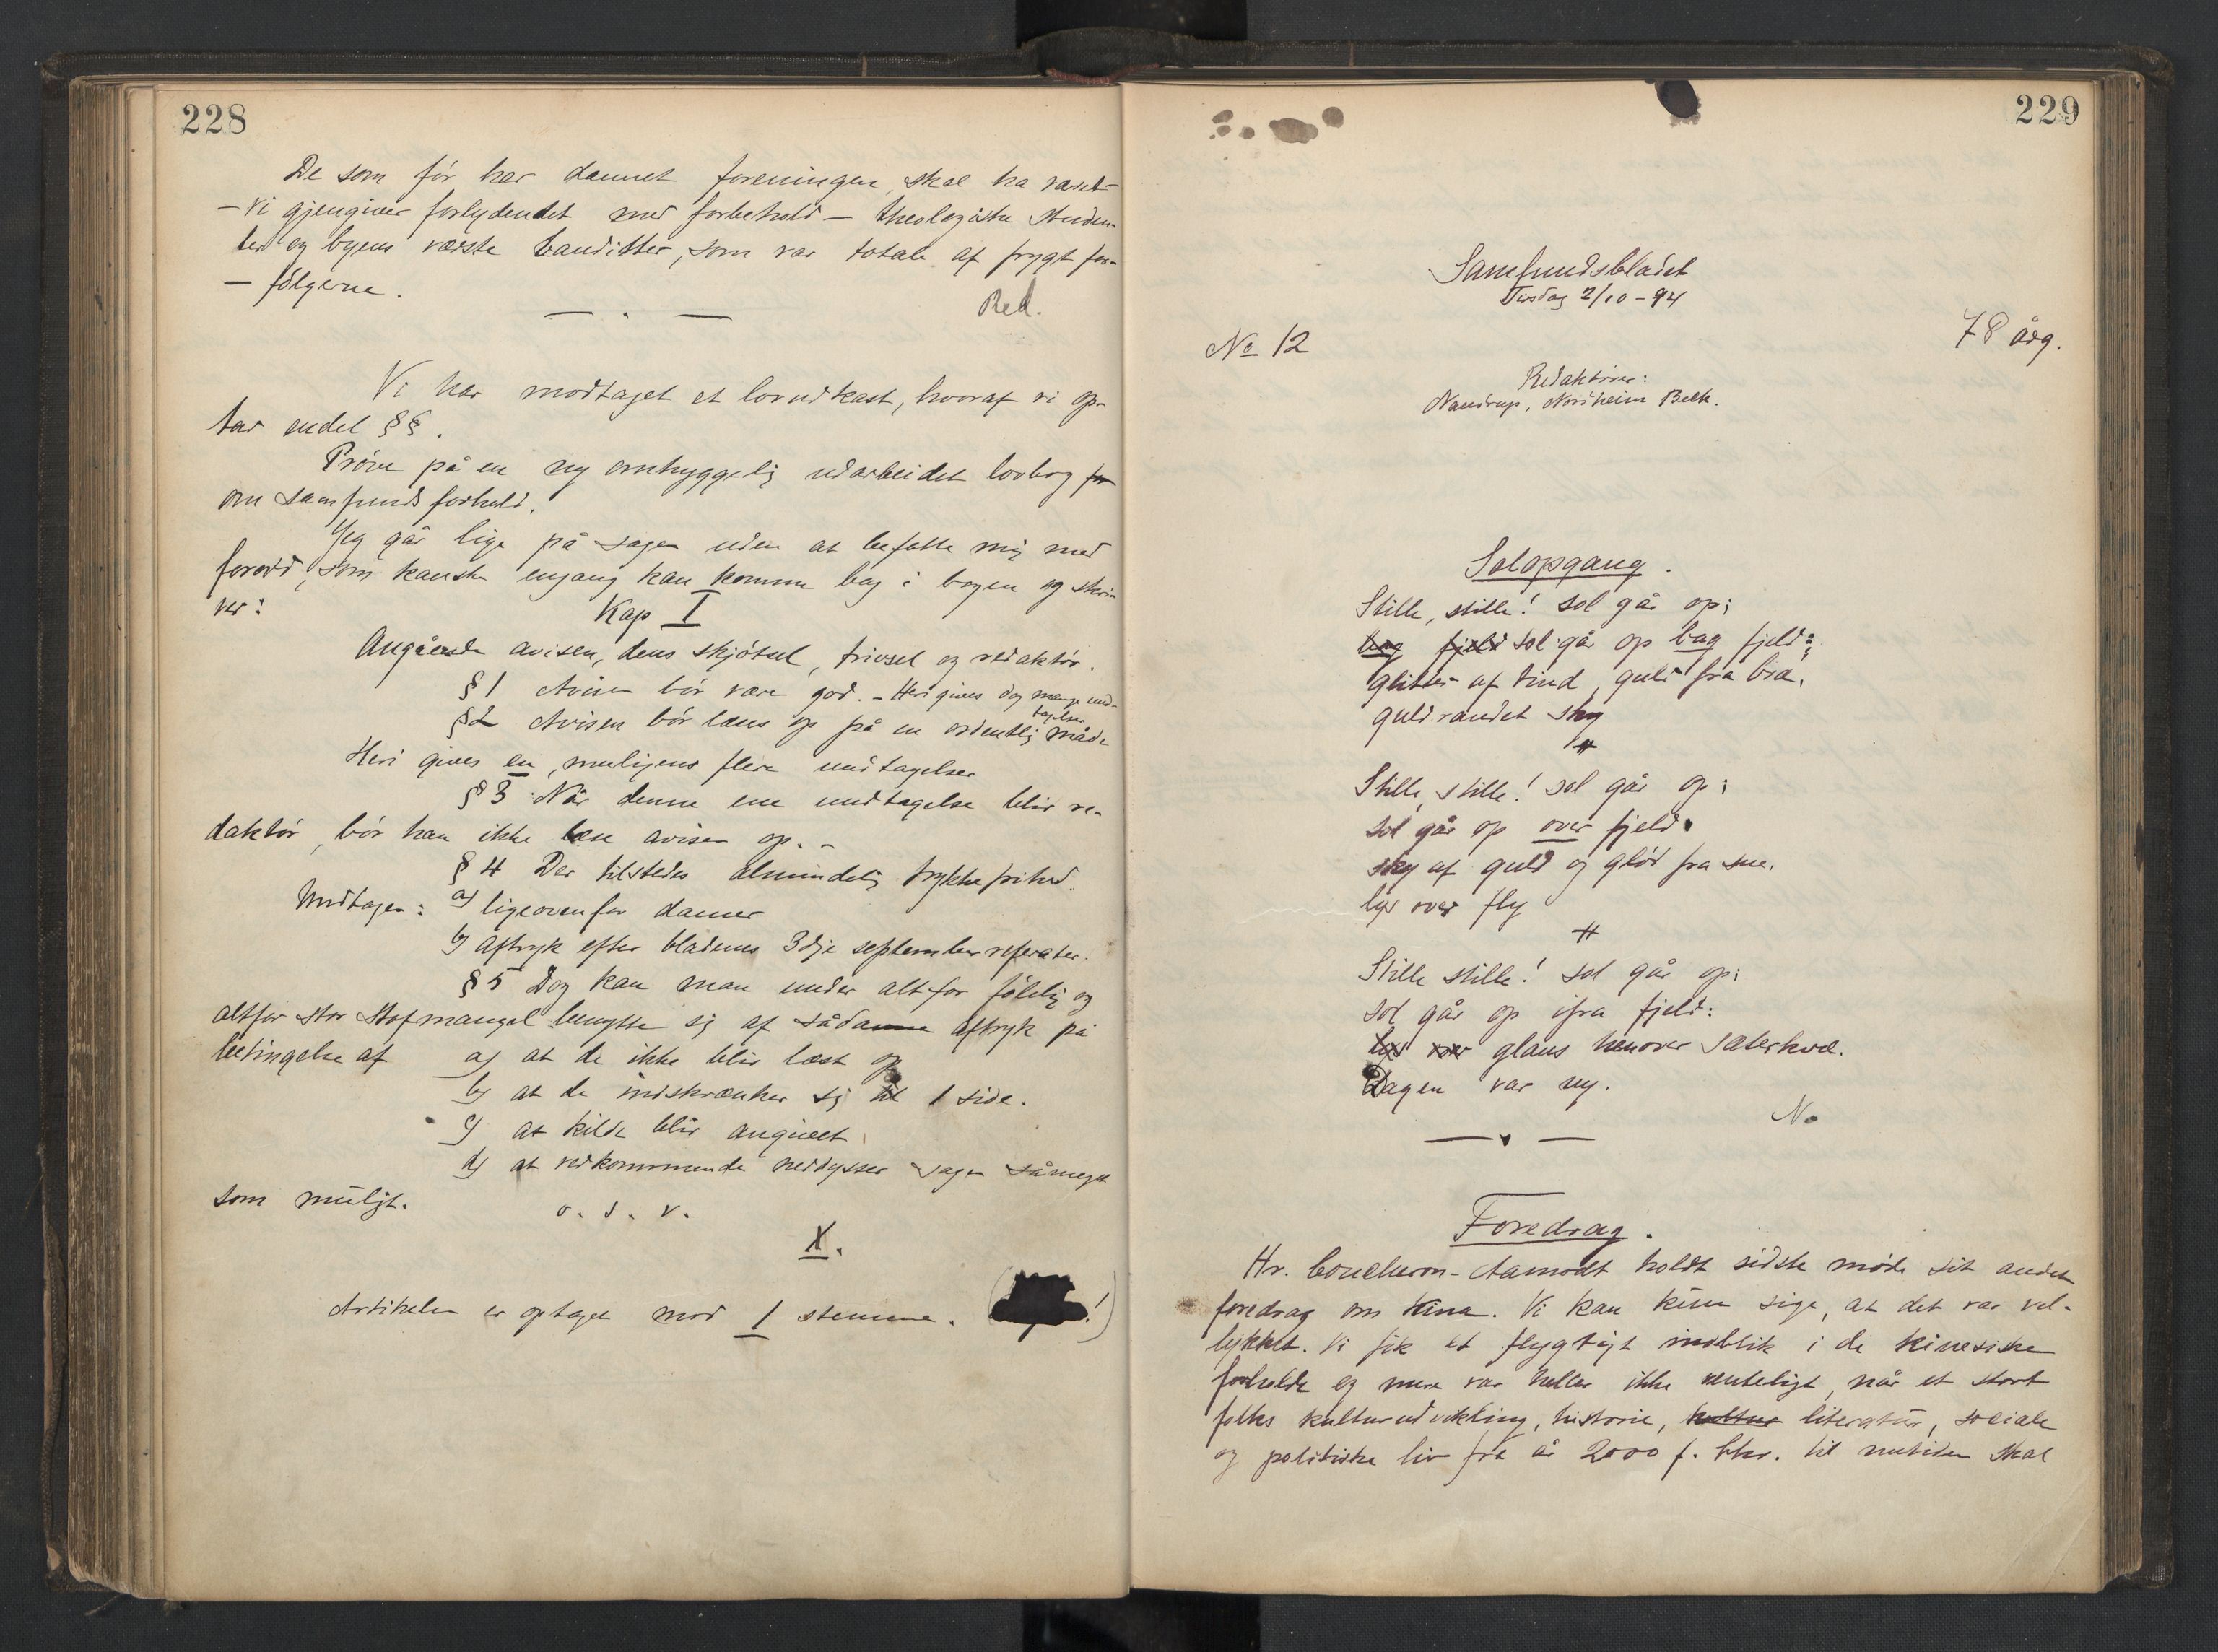 228
De som før har dannet foreningen, skal ha været
– vi gjengiver forlydendet med forbehold – theologiske studen-
ter og byens værste banditter, som var totale af frygt for
– følgerne.
Red.
Vi har modtaget et lovudkast, hvoraf vi op-
tar endel §§.
Prøve på en ny omhyggelig udarbeidet lovbog for
om samfundsforhold.
Jeg går lige på sagen uden at befatte mig med
forord, som kanske engang kan komme bag i bogen og skri-
ver:
Kap I
Angående avisen, dens skjøtsel, trivsel og redaktør.
§ 1 Avisen bør være god. – Heri gives dog mange und-
tagelser
§ 2 Avisen bør læses op på en ordentlig måde
Heri gives en, muligens flere undtagelser
§ 3 Når denne ene undtagelse blir re-
daktør, bør han ikke læse avisen op. –
§ 4 Der tilstedes almindelig trykkefrihed.
Undtagen: a) ligeovenfor damer
b) aftryk efter bladenes 3dje septemberreferater.
§ 5 Dog kan man under altfor følelig og
altfor stor stofmangel benytte sig af sådanne aftryk på
betingelse af a) at de ikke blir læst op
b) at de indskrænker sig til 1 side.
c) at kilde blir angivet
d) at vedkommende neddysser sagen såmeget
som muligt.
o. s. v.
X.
Artikelen er optaget mod 1 stemme. ( !)
229
Samfundsbladet
Tirsdag 2/10 – 94
No 12
78 årg.
Redaktører:
Nandrup, Nordheim Beck.
Solopgang.
Stille, stille! sol går op;
bag fjeld sol går op bag fjeld:
glitter af tind, guld fra bræ,
guldrandet sky
#
Stille, stille! sol går op;
sol går op over fjeld.
sky af guld og glød fra sne,
lys over fly
#
Stille stille! sol går op;
sol går op ifra fjeld:
lys over glans henover sæterkvæ.
Dagen var ny.
N.
Foredrag.
Hr. Coucheron-Aamodt holdt sidste møde sit andet
foredrag om Kina. Vi kan kun sige, at det var vel-
lykket. Vi fik et flygtigt indblik i de kinesiske
forholde og mere var heller ikke venteligt, når et stort
folks kulturudvikling, historie, kultur literatur, sociale
og politiske liv fra år 2000 f. Chr. til nutiden skal